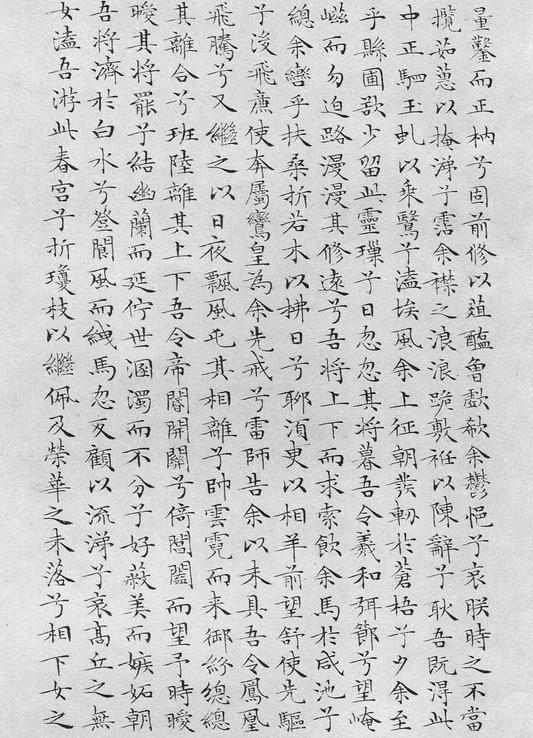 量鑿而正枘兮固前修以葅醢曾歔欷余鬱悒兮哀朕時之不當
攬茹蕙以掩涕兮霑余襟之浪浪跪敷衽以陳辭兮耿吾既得此
中正駟玉虬以乘鷖兮溘埃風余上征朝發軔於蒼梧兮夕余至
乎縣圃欲少留此靈瑣兮日忽忽其將暮吾令羲和弭節兮望崦
嵫而勿迫路漫漫其修遠兮吾將上下而求索飲余馬於咸池兮
總余轡乎扶桑折若木以拂日兮聊須臾以相羊前望舒使先驅
兮後飛廉使奔屬鸞皇為余先戒兮雷師告余以未具吾令鳳凰
飛騰兮又繼之以日夜飄風屯其相離兮帥雲霓而來御紛總總
其離合兮班陸離其上下吾令帝閽開關兮倚閶闔而望予時曖
曖其將罷兮結幽蘭而延佇世溷濁而不分兮好蔽美而嫉妬朝
吾將濟於白水兮登閬風而緤馬忽反顧以流涕兮哀高丘之無
女溘吾游此春宮兮折瓊枝以繼佩及榮華之未落兮相下女之